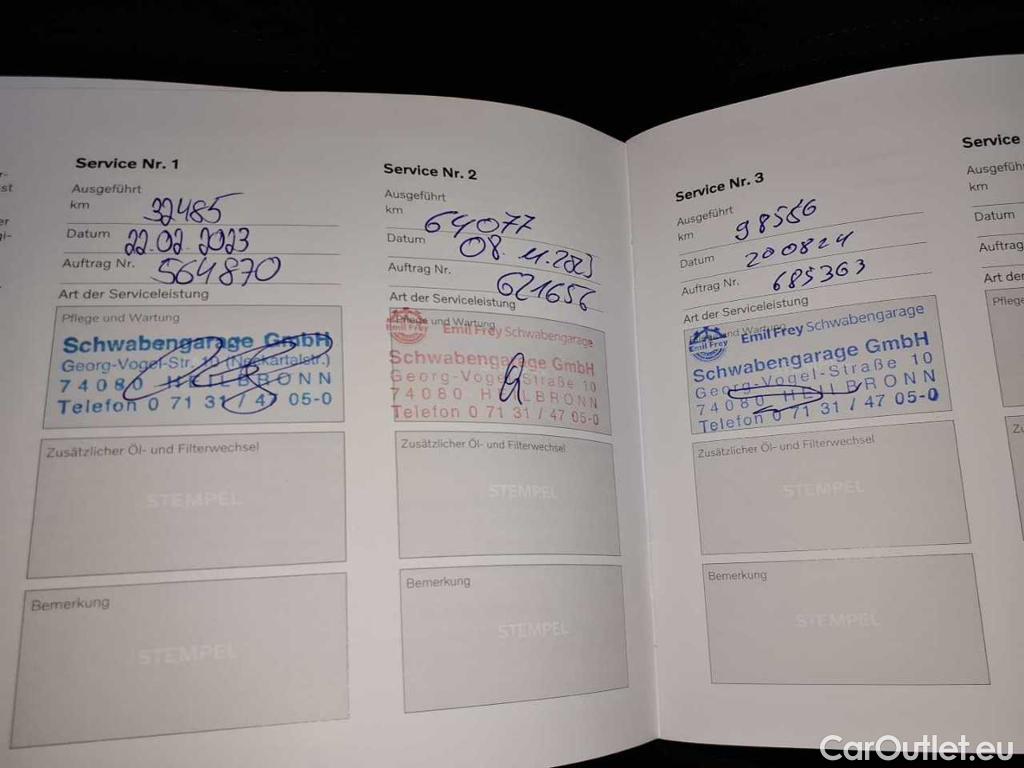 Service Nr. 1
Ausgeführt
km 32485
Datum 22.02.2023
Auftrag Nr. 564870
Art der Serviceleistung
Pflege und Wartung
Schwabengarage GmbH
Georg-Vogel-Str. 10 (Neckartalstr.)
74080 HEILBRONN
Telefon 0 71 31 / 47 05-0
Zusätzlicher Öl- und Filterwechsel
STEMPEL
Bemerkung
STEMPEL
Service Nr. 2
Ausgeführt
km 64077
Datum 08.11.2023
Auftrag Nr. 621656
Art der Serviceleistung
Pflege und Wartung
Emil Frey
Emil Frey Schwabengarage
Schwabengarage GmbH
Georg-Vogel-Straße 10
74080 HEILBRONN
Telefon 0 71 31 / 47 05-0
Zusätzlicher Öl- und Filterwechsel
STEMPEL
Bemerkung
STEMPEL
Service Nr. 3
Ausgeführt
km 98556
Datum 200824
Auftrag Nr. 685363
Art der Serviceleistung
und Wartung
Emil Frey
Emil Frey Schwabengarage
Schwabengarage GmbH
Georg-Vogel-Straße 10
74080 HEILBRONN
Telefon 0 71 31 / 47 05-0
Zusätzlicher Öl- und Filterwechsel
STEMPEL
Bemerkung
STEMPEL
Service
Ausgefüh
km
Datum
Auftrag
Art der
Pflege
Zu
Be
CarOutlet.eu